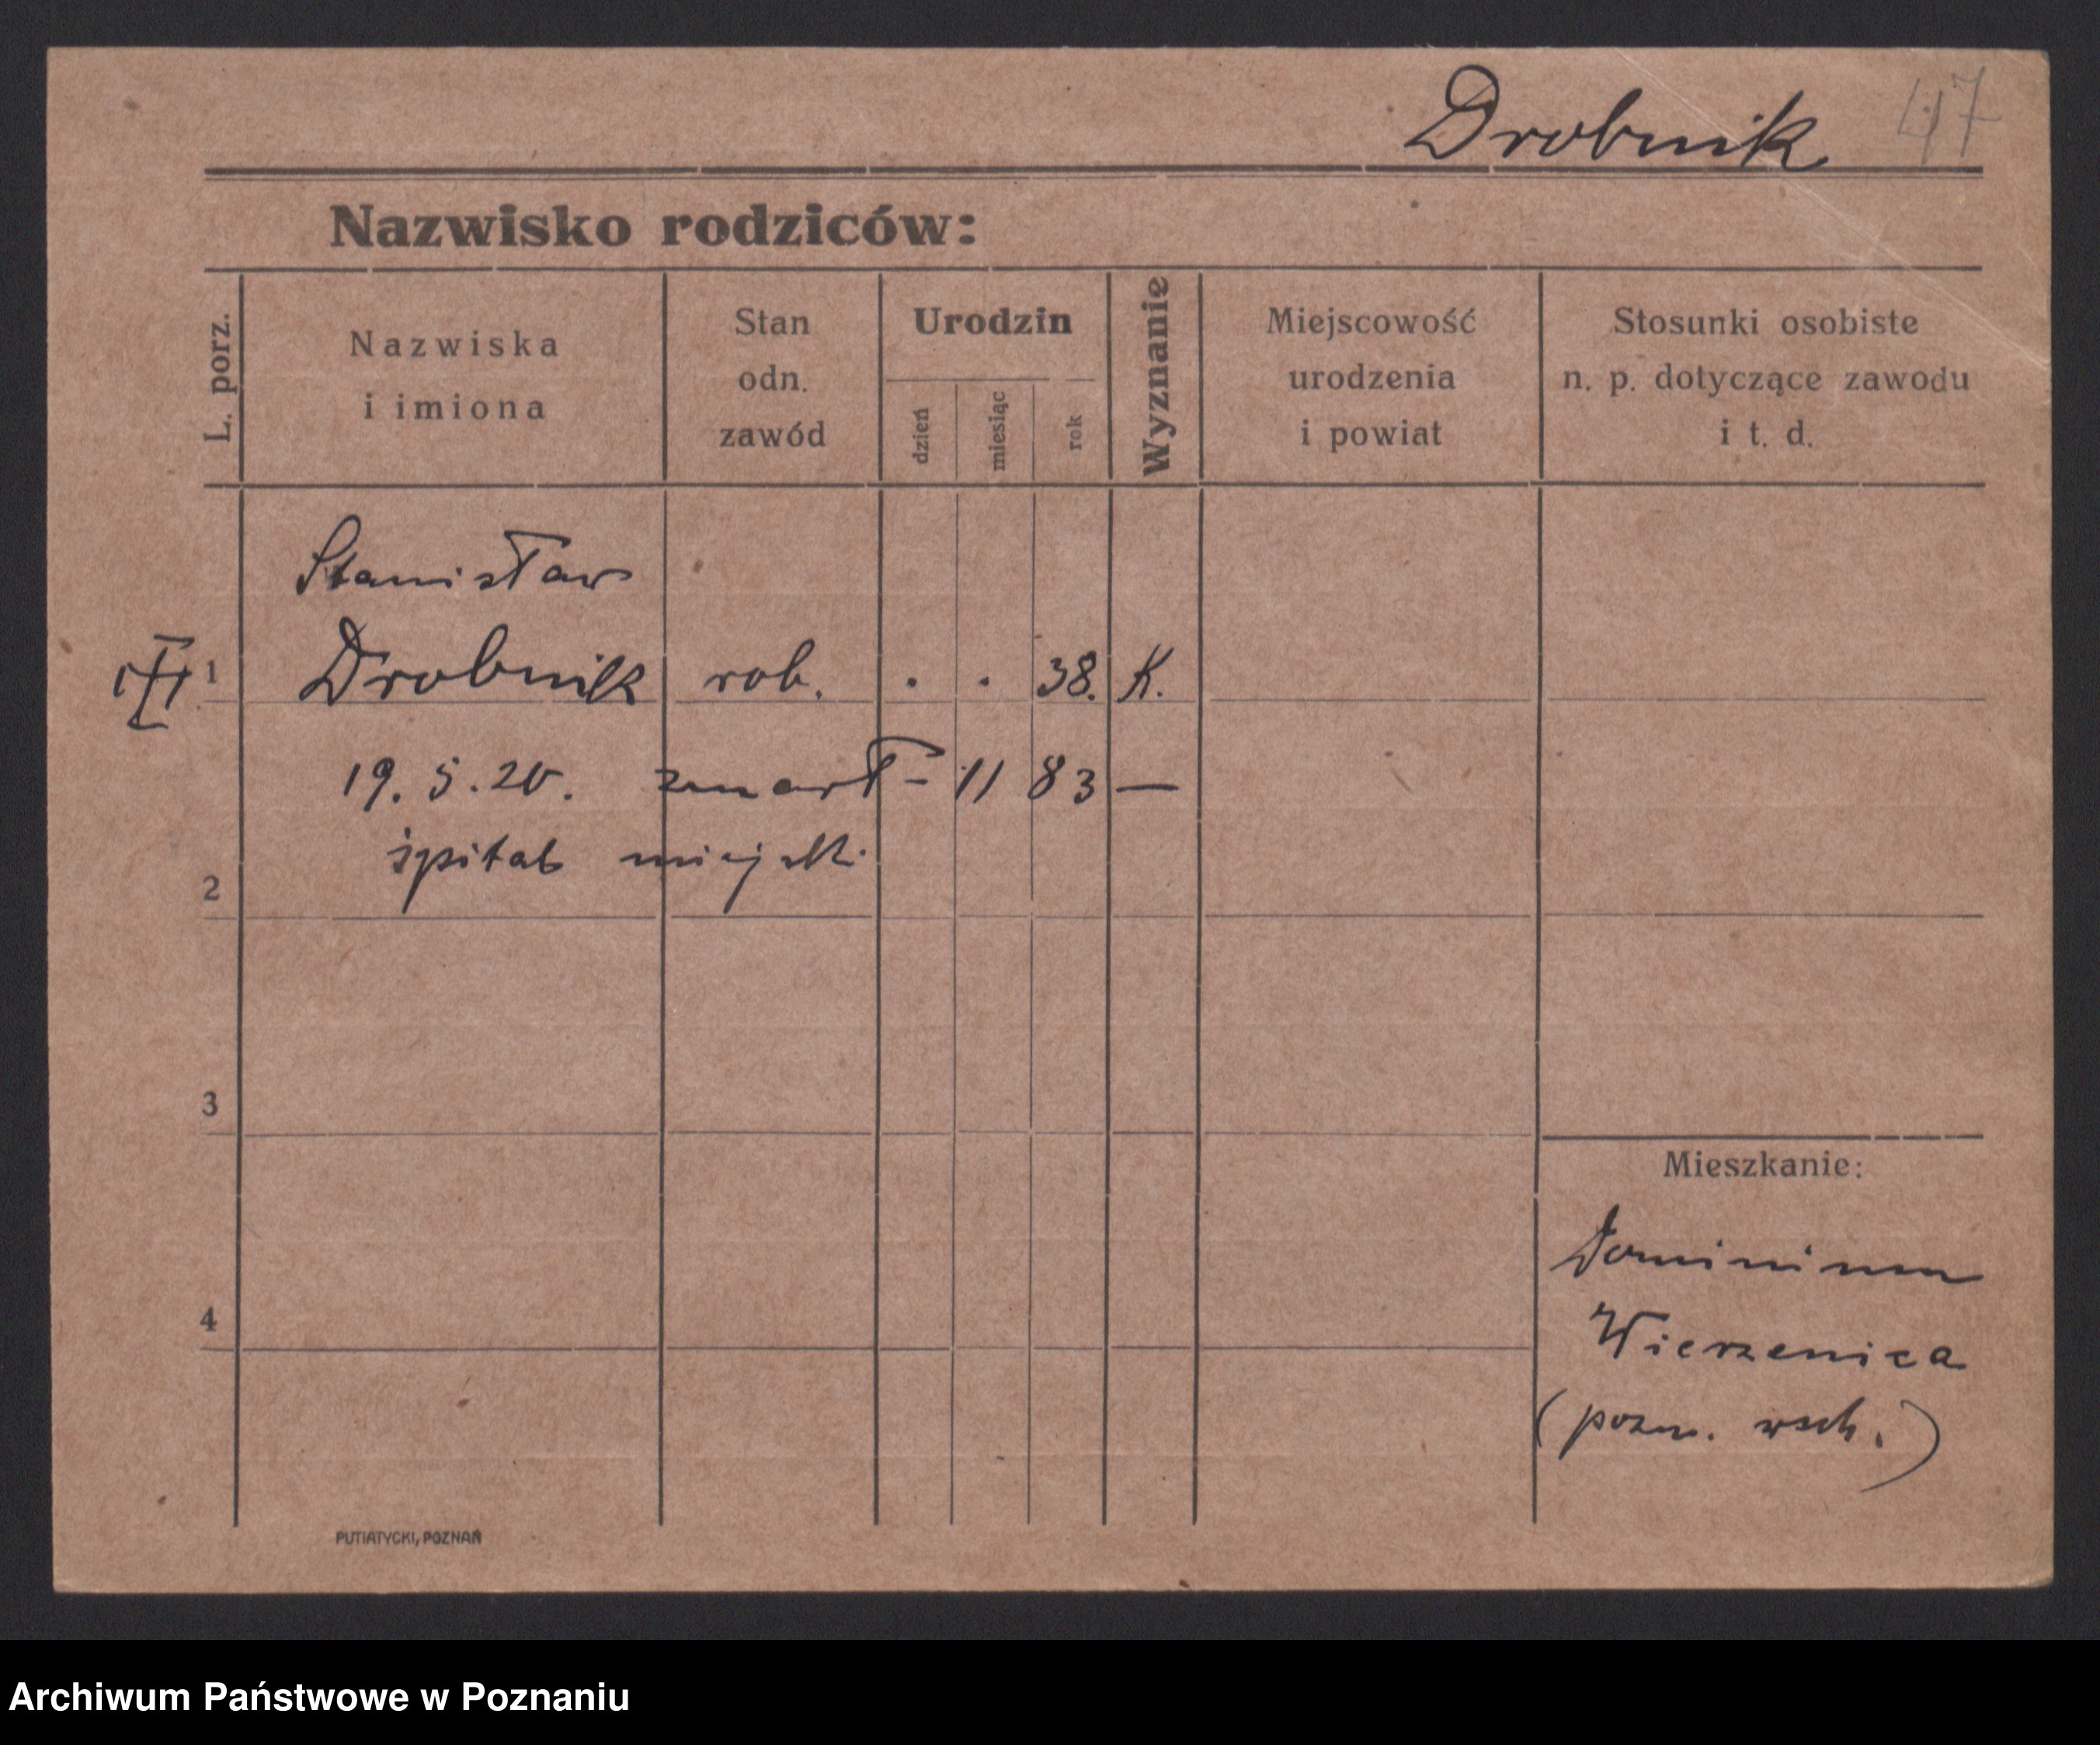 Drobnik 47
Nazwisko rodziców:
L. porz.
Nazwiska
i imiona
Stan
odn.
zawód
Urodzin
dzień
miesiąc
rok
Wyznanie
Miejscowość
urodzenia
i powiat
Stosunki osobiste
n. p. dotyczące zawodu
i t. d.
Stanisław
1 Drobnik rob. . . 38. K.
19. 5. 20. zmarł - 11 83 —
szpital miejsk.
2
3
4
Mieszkanie:
Dominium
Wierzenica
(pozn. wsch.)
PUTIATYCKI, POZNAŃ
Archiwum Państwowe w Poznaniu